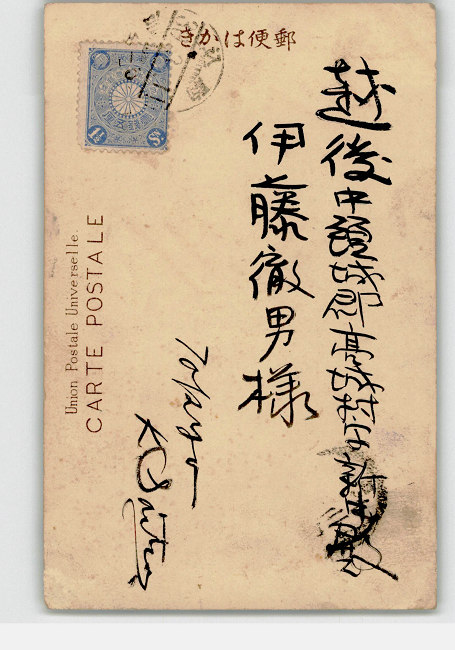 郵便はかき
越後中頸城郡高城村字新
伊藤徹男様
Tokyo
K Saitow
Union Postale Universelle.
CARTE POSTALE